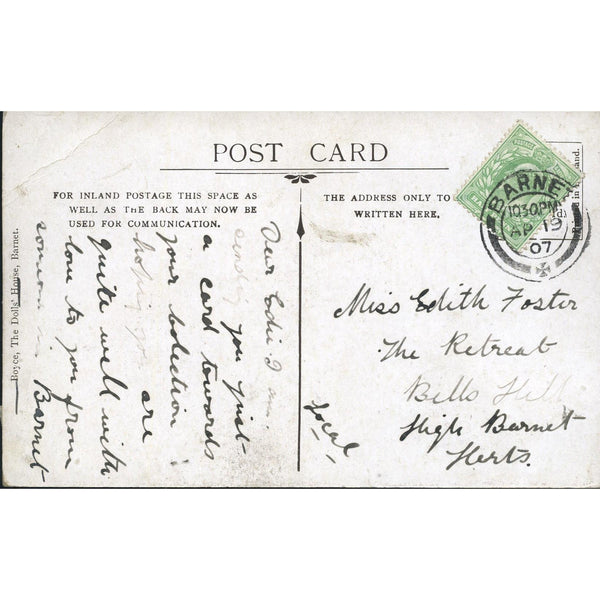 POST CARD
FOR INLAND POSTAGE THIS SPACE AS
WELL AS THE BACK MAY NOW BE
USED FOR COMMUNICATION.
THE ADDRESS ONLY TO
WRITTEN HERE.
Boyce, The Dolls' House, Barnet.
Dear Edie I am
sending you just
a card towards
your collection
hoping you are
quite well with
love to you from
someone in Barnet
local
Miss Edith Foster
The Retreat
Bells Hill
High Barnet
Herts.
BARNET
10.30PM
AP 19
07